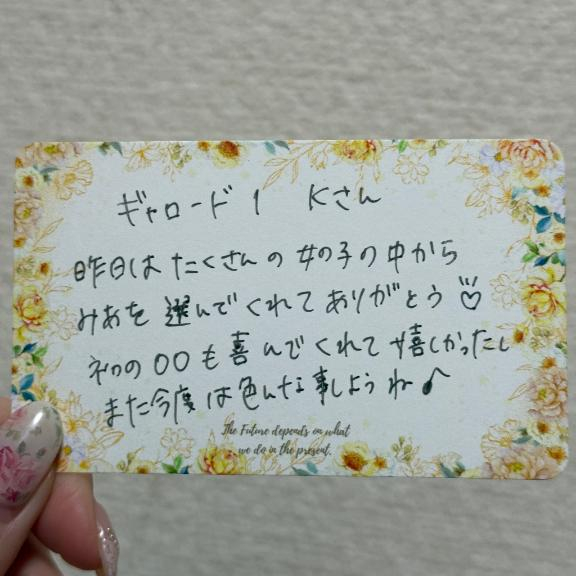 ギャロード1 Kさん
昨日はたくさんの女の子の中から
みあを選んでくれてありがとう♡
初の〇〇も喜んでくれて嬉しかったし
また今度は色んな事しようね♪
The Future depends on what
we do in the present.